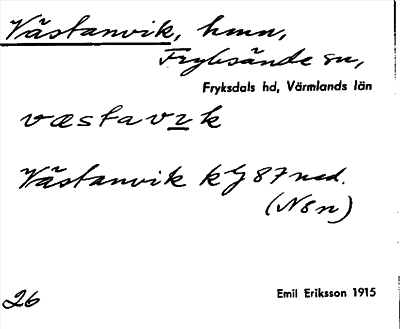 Västanvik, hmn,
Fryksände sn,
Fryksdals hd, Värmlands län
væstavɩk
Västanvik kg 87 ned.
(N8n)
26
Emil Eriksson 1915